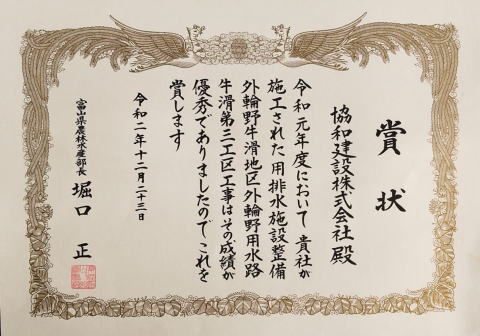 賞状
協和建設株式会社殿
令和元年度において貴社が
施工された用排水施設整備
外輪野牛滑地区外輪野用水路
牛滑第三工区工事はその成績が
優秀でありましたのでこれを
賞します
令和二年十二月二十三日
富山県農林水産部長 堀口 正